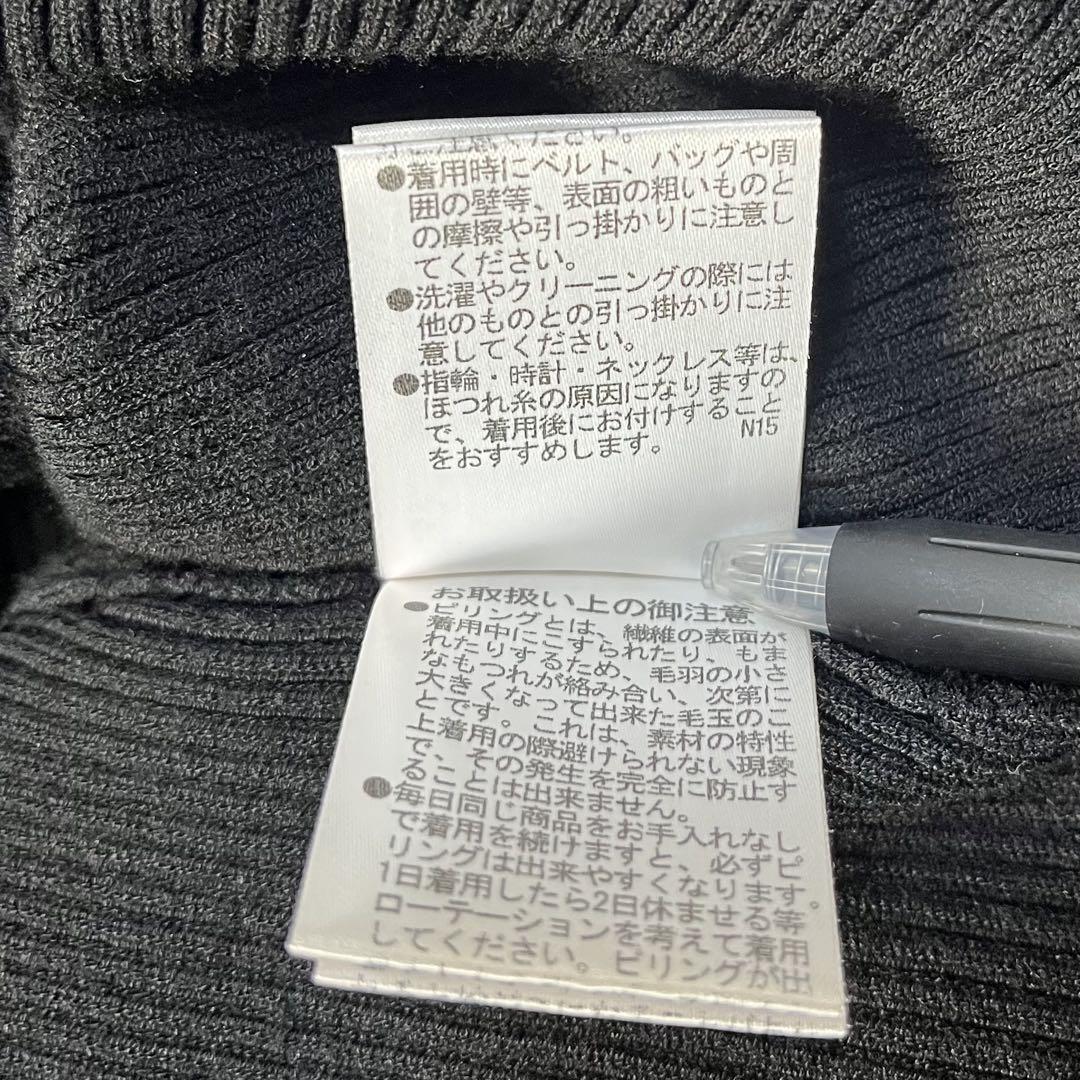 に注意ください。
●着用時にベルト、バッグや周
囲の壁等、表面の粗いものと
の摩擦や引っ掛かりに注意し
てください。
●洗濯やクリーニングの際には
他のものとの引っ掛かりに注
意してください。
●指輪・時計・ネックレス等は、
ほつれ糸の原因になりますの
で、着用後にお付けすること
をおすすめします。
N15
お取扱い上の御注意
●ピリングとは、繊維の表面が
着用中にこすられたり、もま
れたりするため、毛羽の小さ
なもつれが絡み合い、次第に
大きくなって出来た毛玉のこ
とです。これは、素材の特性
上着用の際避けられない現象
で、その発生を完全に防止す
ることは出来ません。
●毎日同じ商品をお手入れなし
で着用を続けますと、必ずピ
リングは出来やすくなります。
1日着用したら2日を休ませる等
ローテーションを考えて着用
してください。ピリングが出